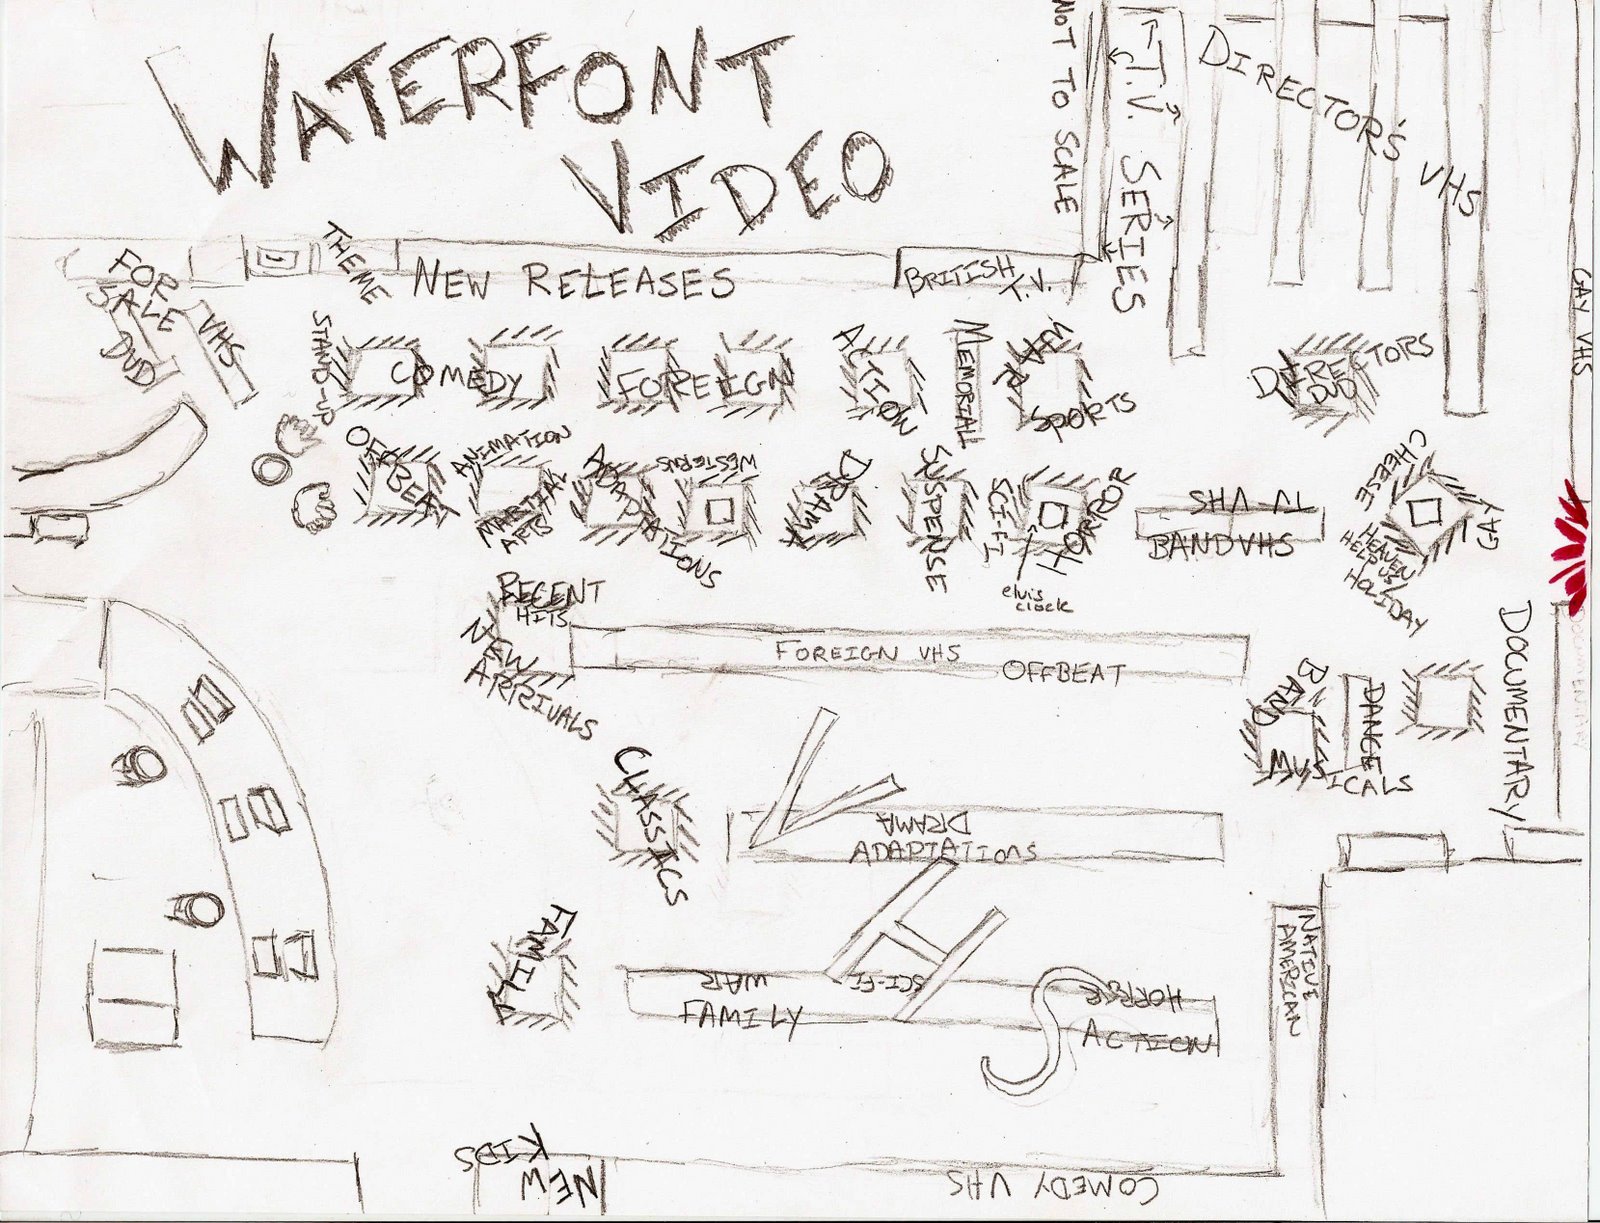 WATERFONT
VIDEO
NOT TO SCALE
T.V. SERIES
DIRECTOR'S VHS
GAY VHS
FOR
SALE
DVD
VHS
THEME
NEW RELEASES
BRITISH
T.V.
STAND-UP
COMEDY
FOREIGN
ACTION
MEMORIAL
SPORTS
DIRECTORS
DVD
OFFBEAT
ANIMATION
MARTIAL
ARTS
ADAPTATIONS
WESTERNS
DRAMA
SUSPENSE
SCI-FI
HORROR
elvis
clock
TV-VHS
BAND VHS
CHEESE
GAY
HEAVEN
HELP US/
HOLIDAY
RECENT
HITS
NEW
ARRIVALS
FOREIGN VHS
OFFBEAT
BAND
DANCE
MUSICALS
DOCUMENTARY
DOCUMENTARY
CLASSICS
DRAMA
ADAPTATIONS
VHS
FAMILY
WAR
SCI-FI
HORROR
FAMILY
ACTION
NATIVE
AMERICAN
NEW
KIDS
COMEDY VHS